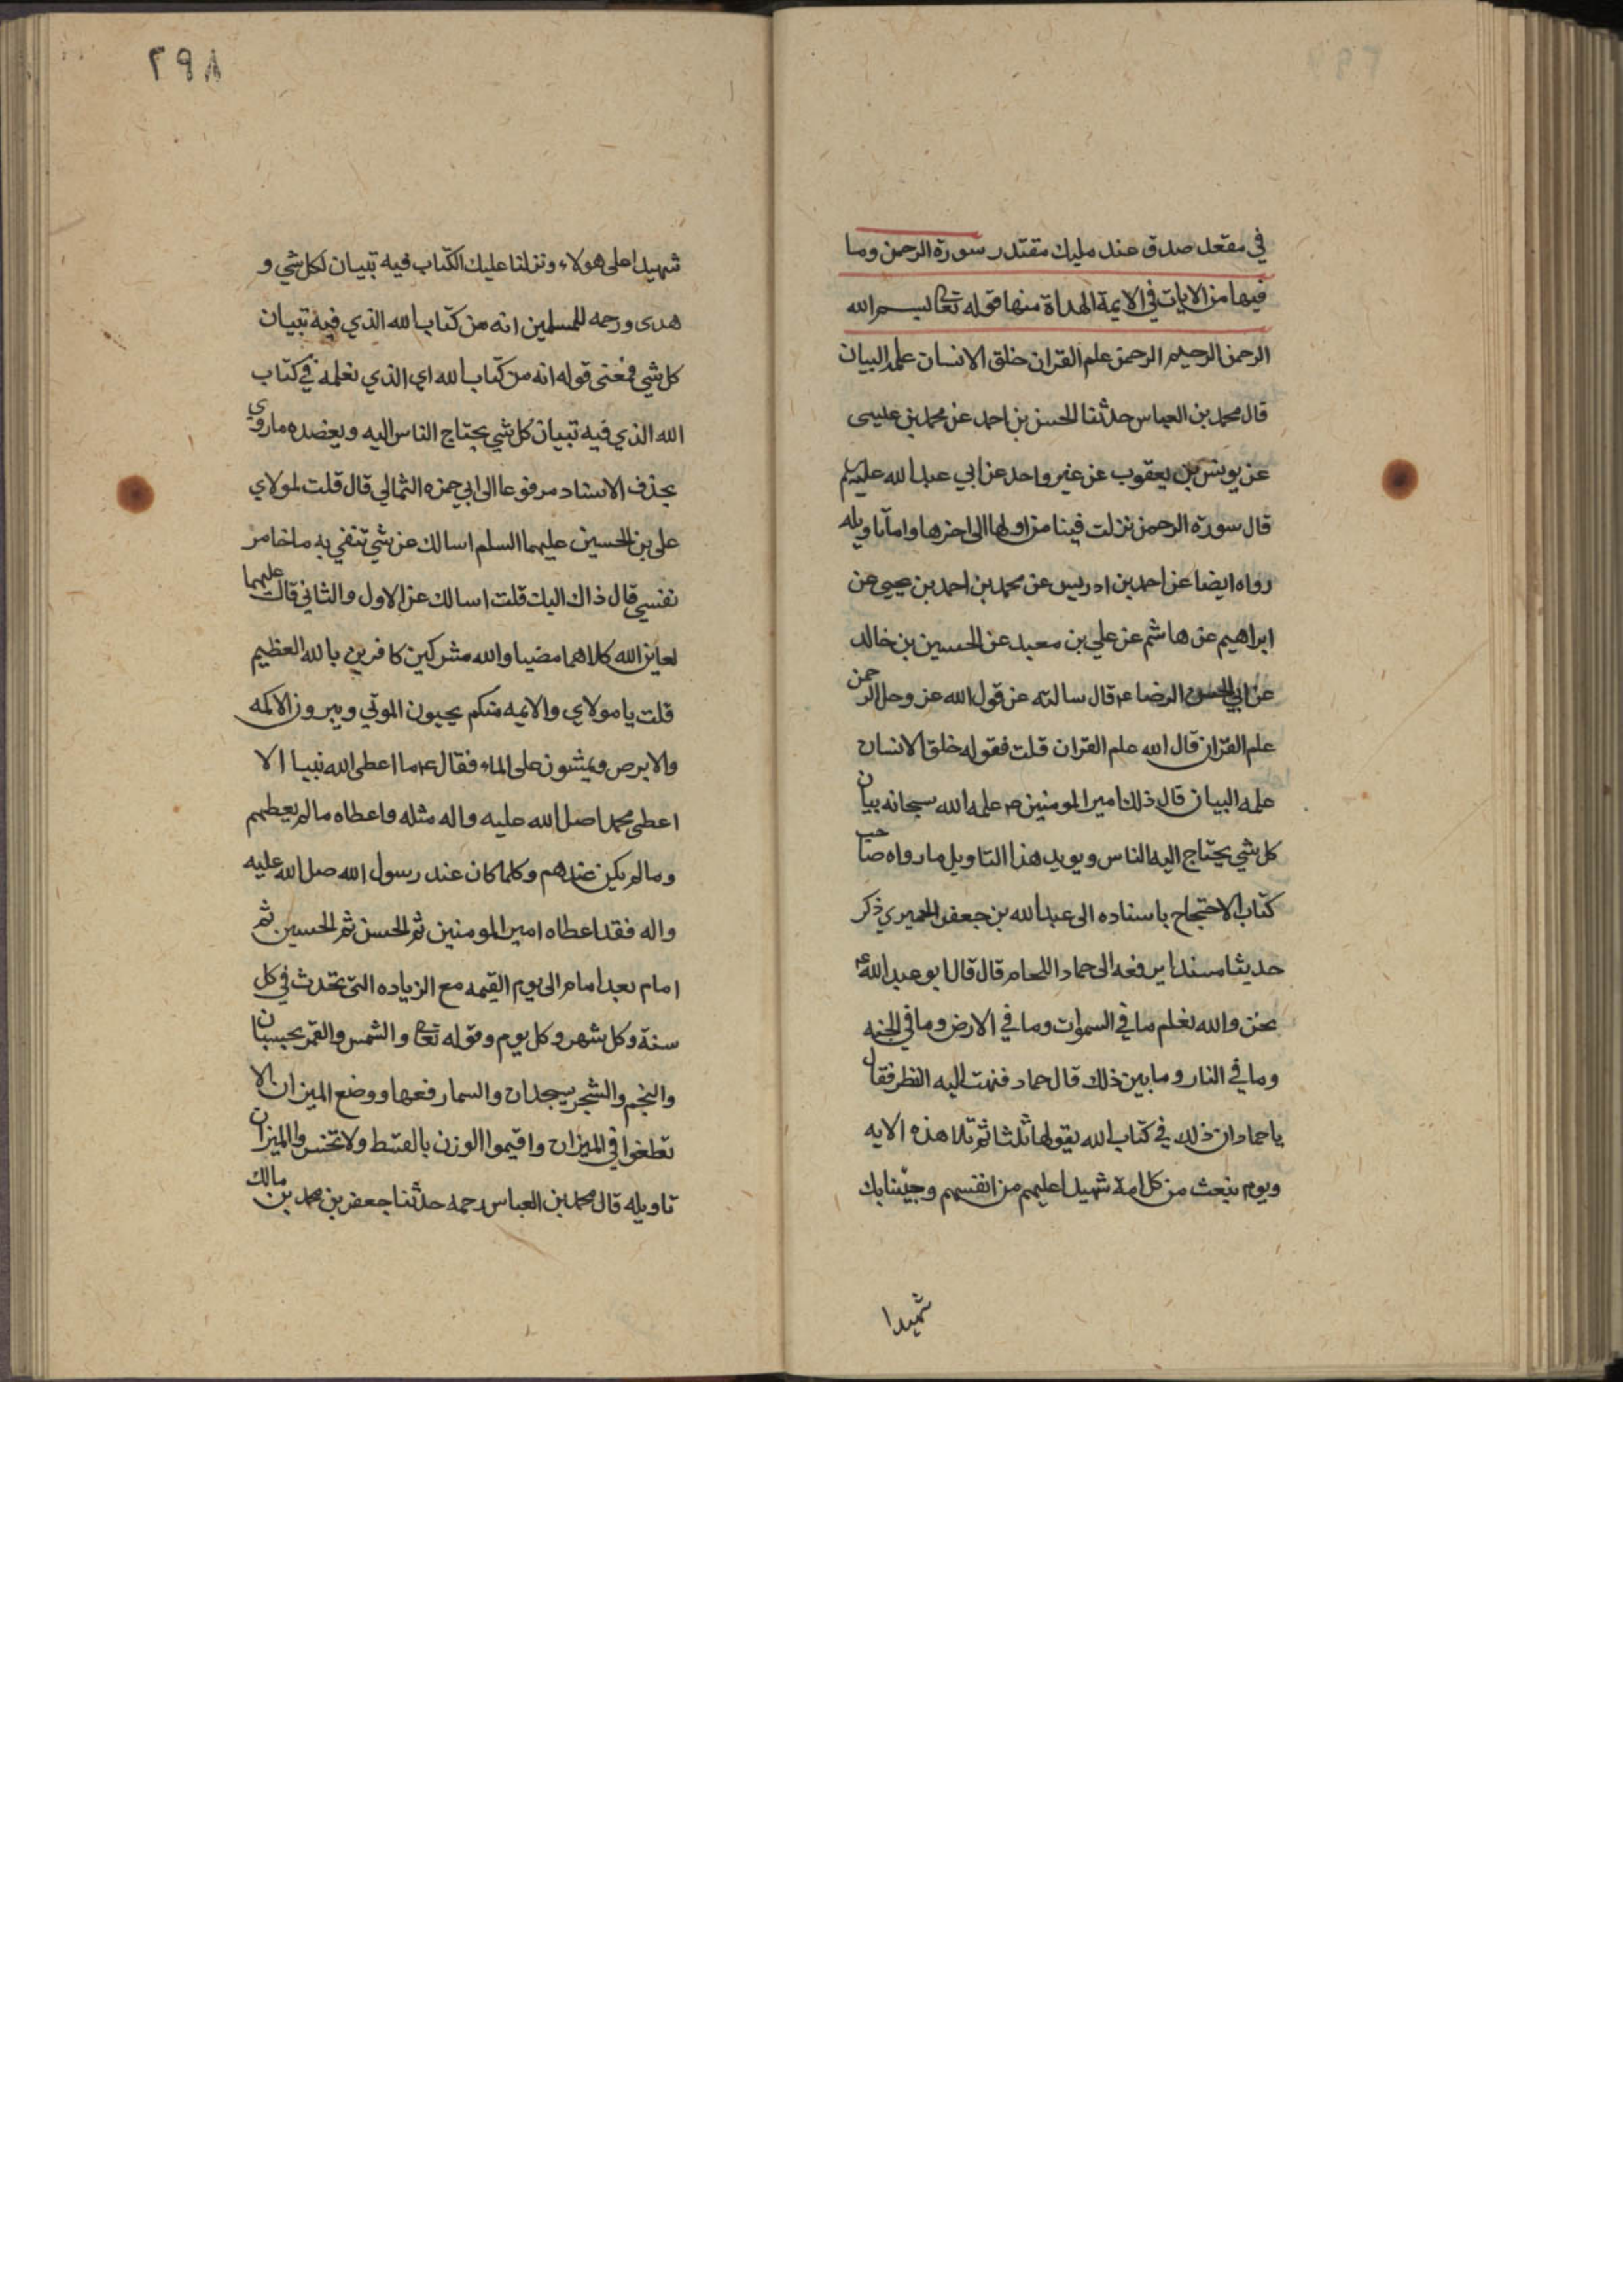 في مقعد صدق عند مليك مقتدر سورة الرحمن وما
فيها من الايات في الايمة الهداة منها قوله تعا بسم الله
الرحمن الرحيم الرحمن علم القران خلق الانسان علمه البيان
قال محمد بن العباس حدثنا الحسن بن احمد عن محمد بن عيسى
عن يونس بن يعقوب عن غير واحد عن ابي عبد الله عليه
قال سورة الرحمن نزلت فينا من اولها الى اخرها واما تاويله
رواه ايضا عن احمد بن ادريس عن محمد بن احمد بن يحيى عن
ابراهيم عن هاشم عن علي بن معبد عن الحسين بن خالد
عن ابي الحسن الرضا ع قال سالته عن قول الله عز وجل الرحمن
علم القران قال الله علم القران قلت فقوله خلق الانسان
علمه البيان قال ذلك امير المومنين علمه الله سبحانه بيان
كل شي يحتاج اليه الناس ويويد هذا التاويل ما رواه صاحب
كتاب الاحتجاج باسناده الى عبد الله بن جعفر الحميري ذكر
حديثا مسندا يرفعه الى حماد اللحام قال قال ابو عبد الله ع
نحن والله نعلم ما في السموات وما في الارض وما في الجنه
وما في النار وما بين ذلك قال حماد فنهت اليه النظر فقال
يا حماد ان ذلك في كتاب الله يقولها ثلثا ثم تلا هذه الايه
ويوم نبعث من كل امة شهيدا عليهم من انفسهم وجئنا بك
شهيدا
٢٩٨
شهيدا على هولاء ونزلنا عليك الكتاب فيه تبيان لكل شي و
هدى ورحمه للمسلمين انه من كتاب الله الذي فيه تبيان
كل شي فمعنى قوله انه من كتاب الله اي الذي نعلمه في كتاب
الله الذي فيه تبيان كل شي يحتاج الناس اليه ويعضده ما روي
بحذف الاسناد مرفوعا الى ابي حمزه الثمالي قال قلت لمولاي
علي بن الحسين عليهما السلم اسالك عن شي تنفي به ما خامر
نفسي قال ذاك اليك قلت اسالك عن الاول والثاني قال عليهما
لعاين الله كلاهما مضيا والله مشركين كافرين بالله العظيم
قلت يا مولاي والايمه منكم يحيون الموتي ويبرون الاكمه
والابرص ويمشون على الماء فقال ع ما اعطى الله نبيا الا
اعطى محمدا صل الله عليه واله مثله واعطاه ما لم يعطهم
وما لم يكن عندهم وكلما كان عند رسول الله صل الله عليه
واله فقد اعطاه امير المومنين ثم الحسن ثم الحسين ثم
امام بعد امام الى يوم القيمه مع الزياده التي تحدث في كل
سنة وكل شهر وكل يوم وقوله تعا والشمس والقمر بحسبان
والنجم والشجر يسجدان والسما رفعها ووضع الميزان الا
تطغوا في الميزان واقيموا الوزن بالقسط ولا تخسروا الميزان
تاويله قال محمد بن العباس رحمه حدثنا جعفر بن محمد بن مالك